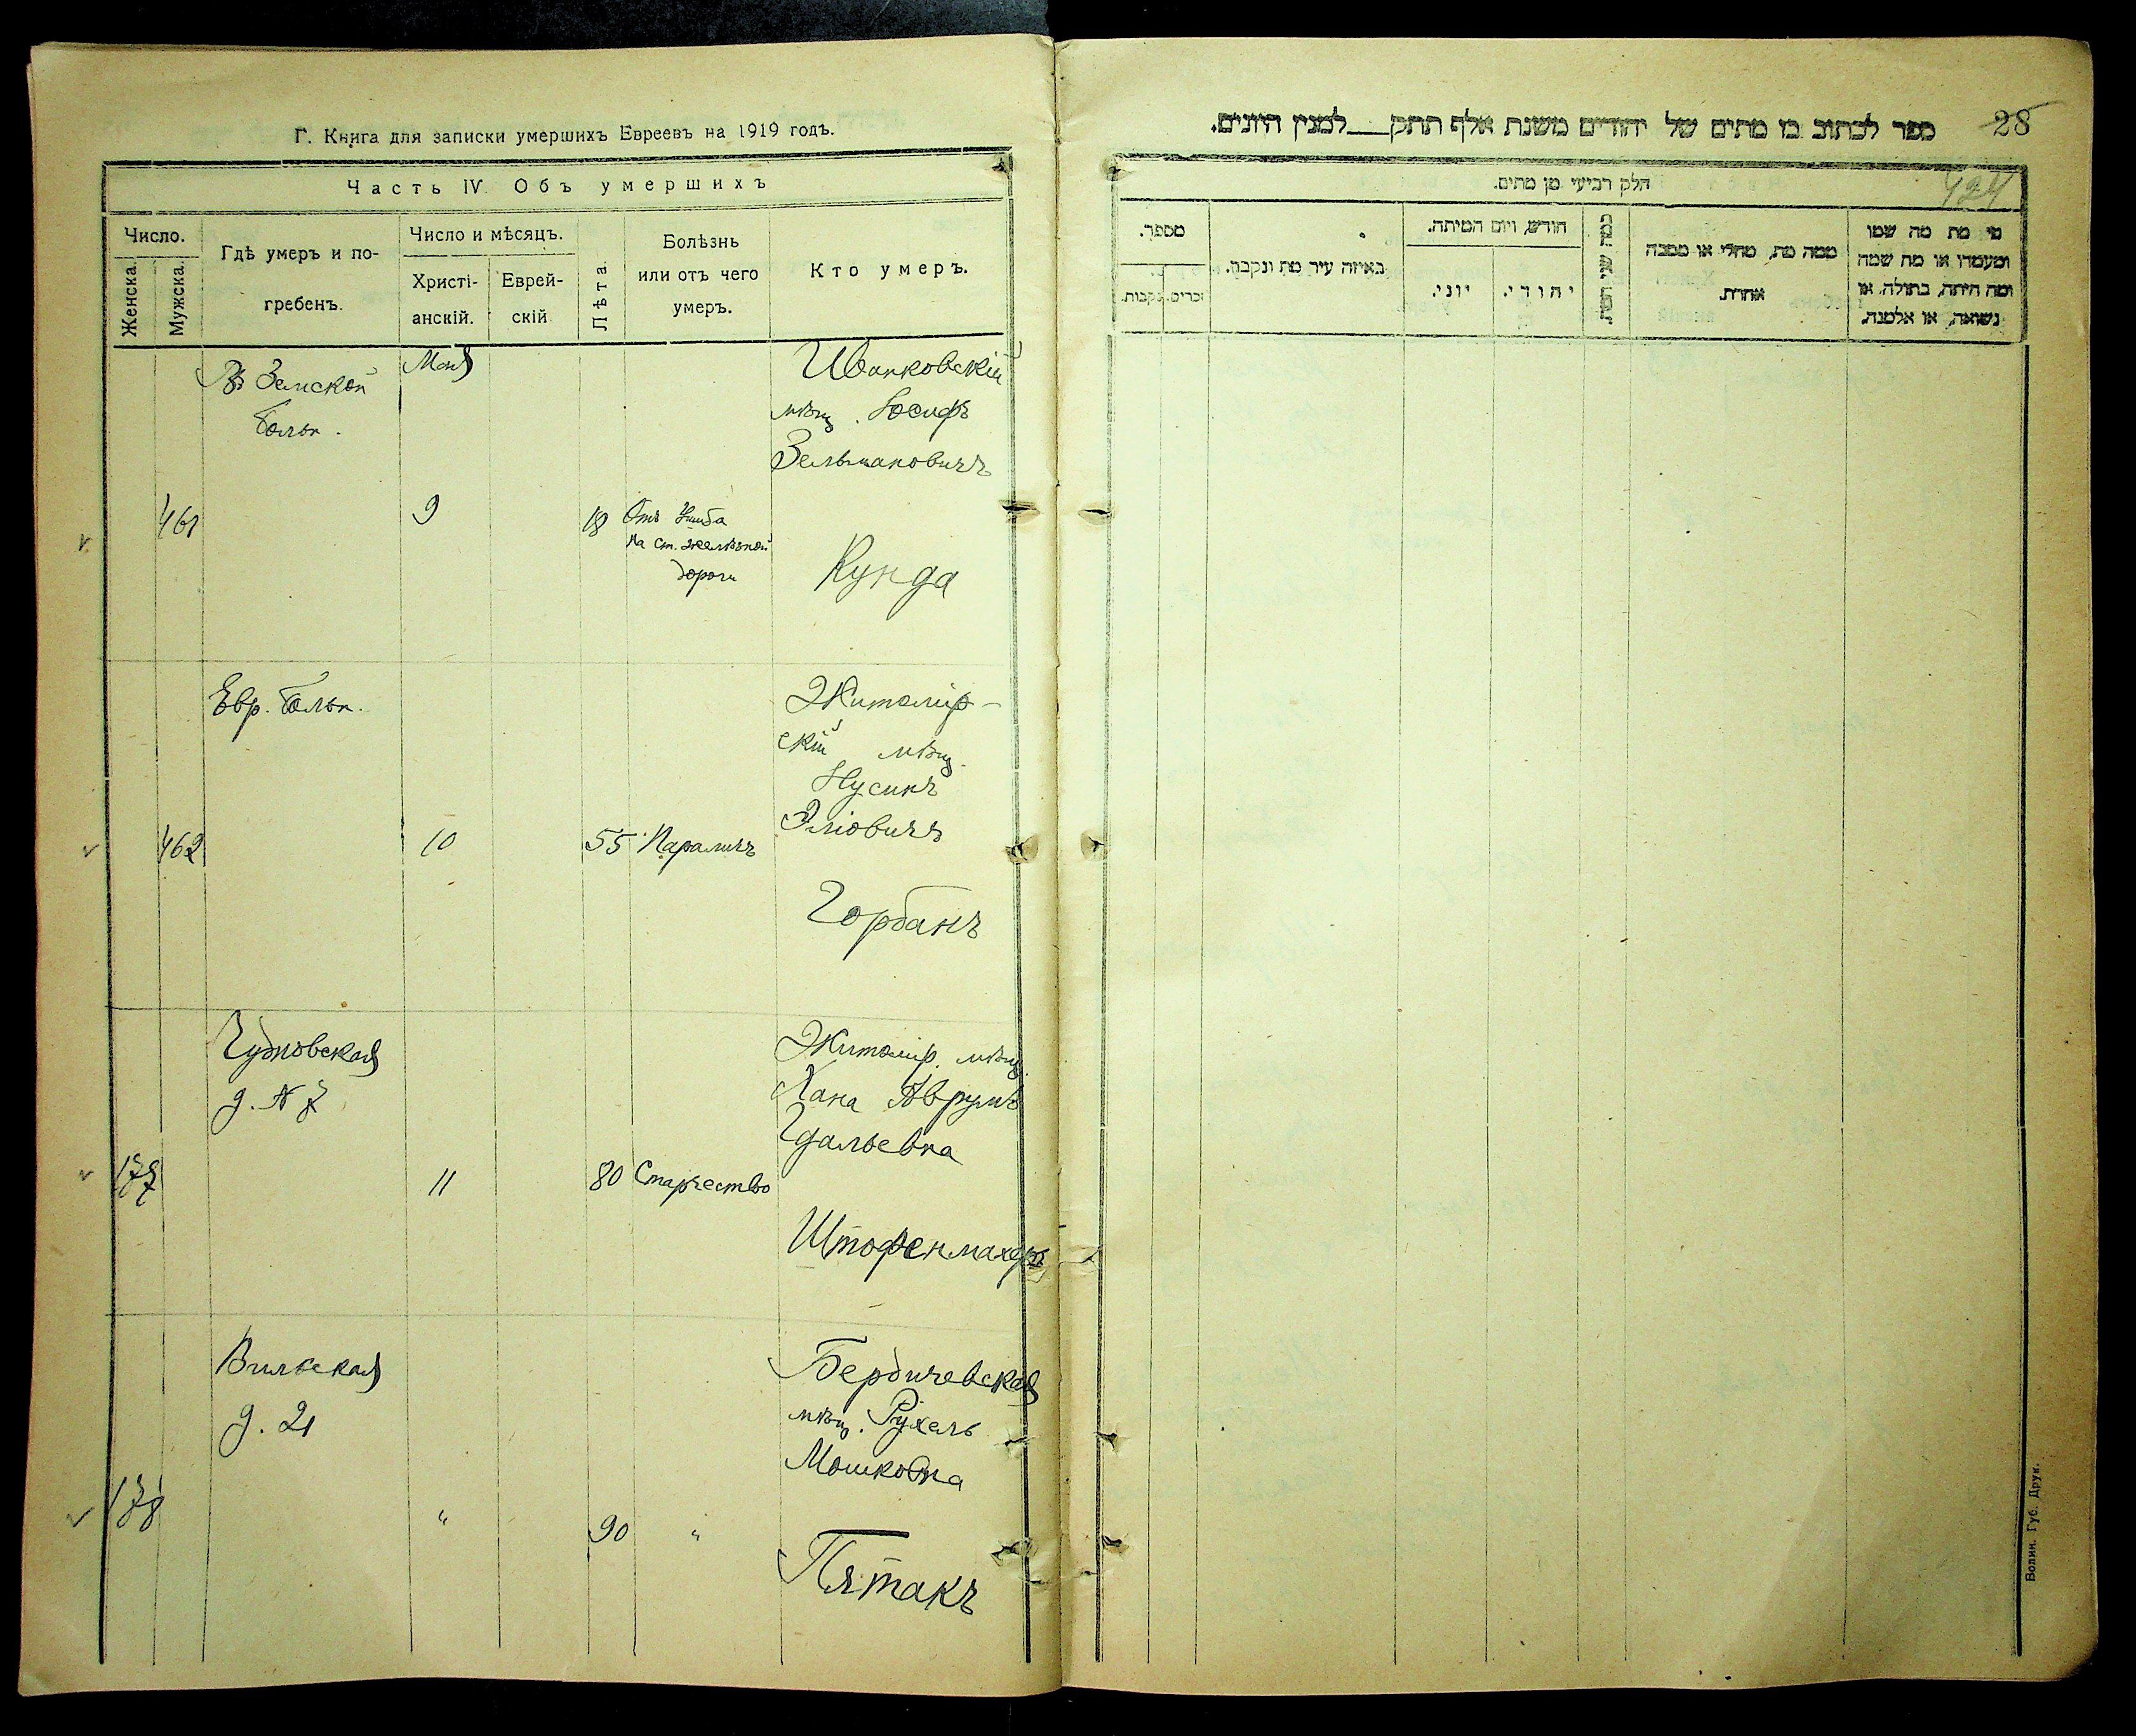 Г. Книга для записки умершихъ Евреевъ на 1919 годъ.
Часть IV. Объ умершихъ
Число.
Женска.
Мужска.
Гдѣ умеръ и по-
гребенъ.
Число и мѣсяцъ.
Христі-
анскій.
Еврей-
скій
Лѣта
Болѣзнь
или отъ чего
умеръ.
Кто умеръ.
Въ Земской
больн.
Мая
Иванковскій
мѣщ. Іосифъ
Зельмановичъ
461
9
18
Отъ ушиба
на ст. желѣзной
дороги
Кунда
Евр. больн.
Житомір-
скій мѣщ.
Нусинъ
Эліовичъ
462
10
55
Параличъ
Горбанъ
Чудновская
д. № 7
Житомір. мѣщ.
Хана Аврумъ
Гдальевна
177
11
80
Старчество
Штофенмахеръ
Вильская
д. 21
Бердичевская
мѣщ. Рухель
Мошковна
178
"
90
"
Пятакъ
28
ספר לכתוב בו מתים של יהודים משנת אלף תתק___למנין היונים.
424
חלק רביעי מן מתים.
מספר.
זכרים.
נקבות.
באיזה עיר מת ונקבר.
חודש, ויום המיתה.
יוני.
יהודי.
כמה שני המת
ממה מת, מחלי או מסבה
אחרת.
מי מת מה שמו
ומעמדו או מה שמה
ומה היתה, בתולה, או
נשואה, או אלמנה.
Волин. Губ. Друк.